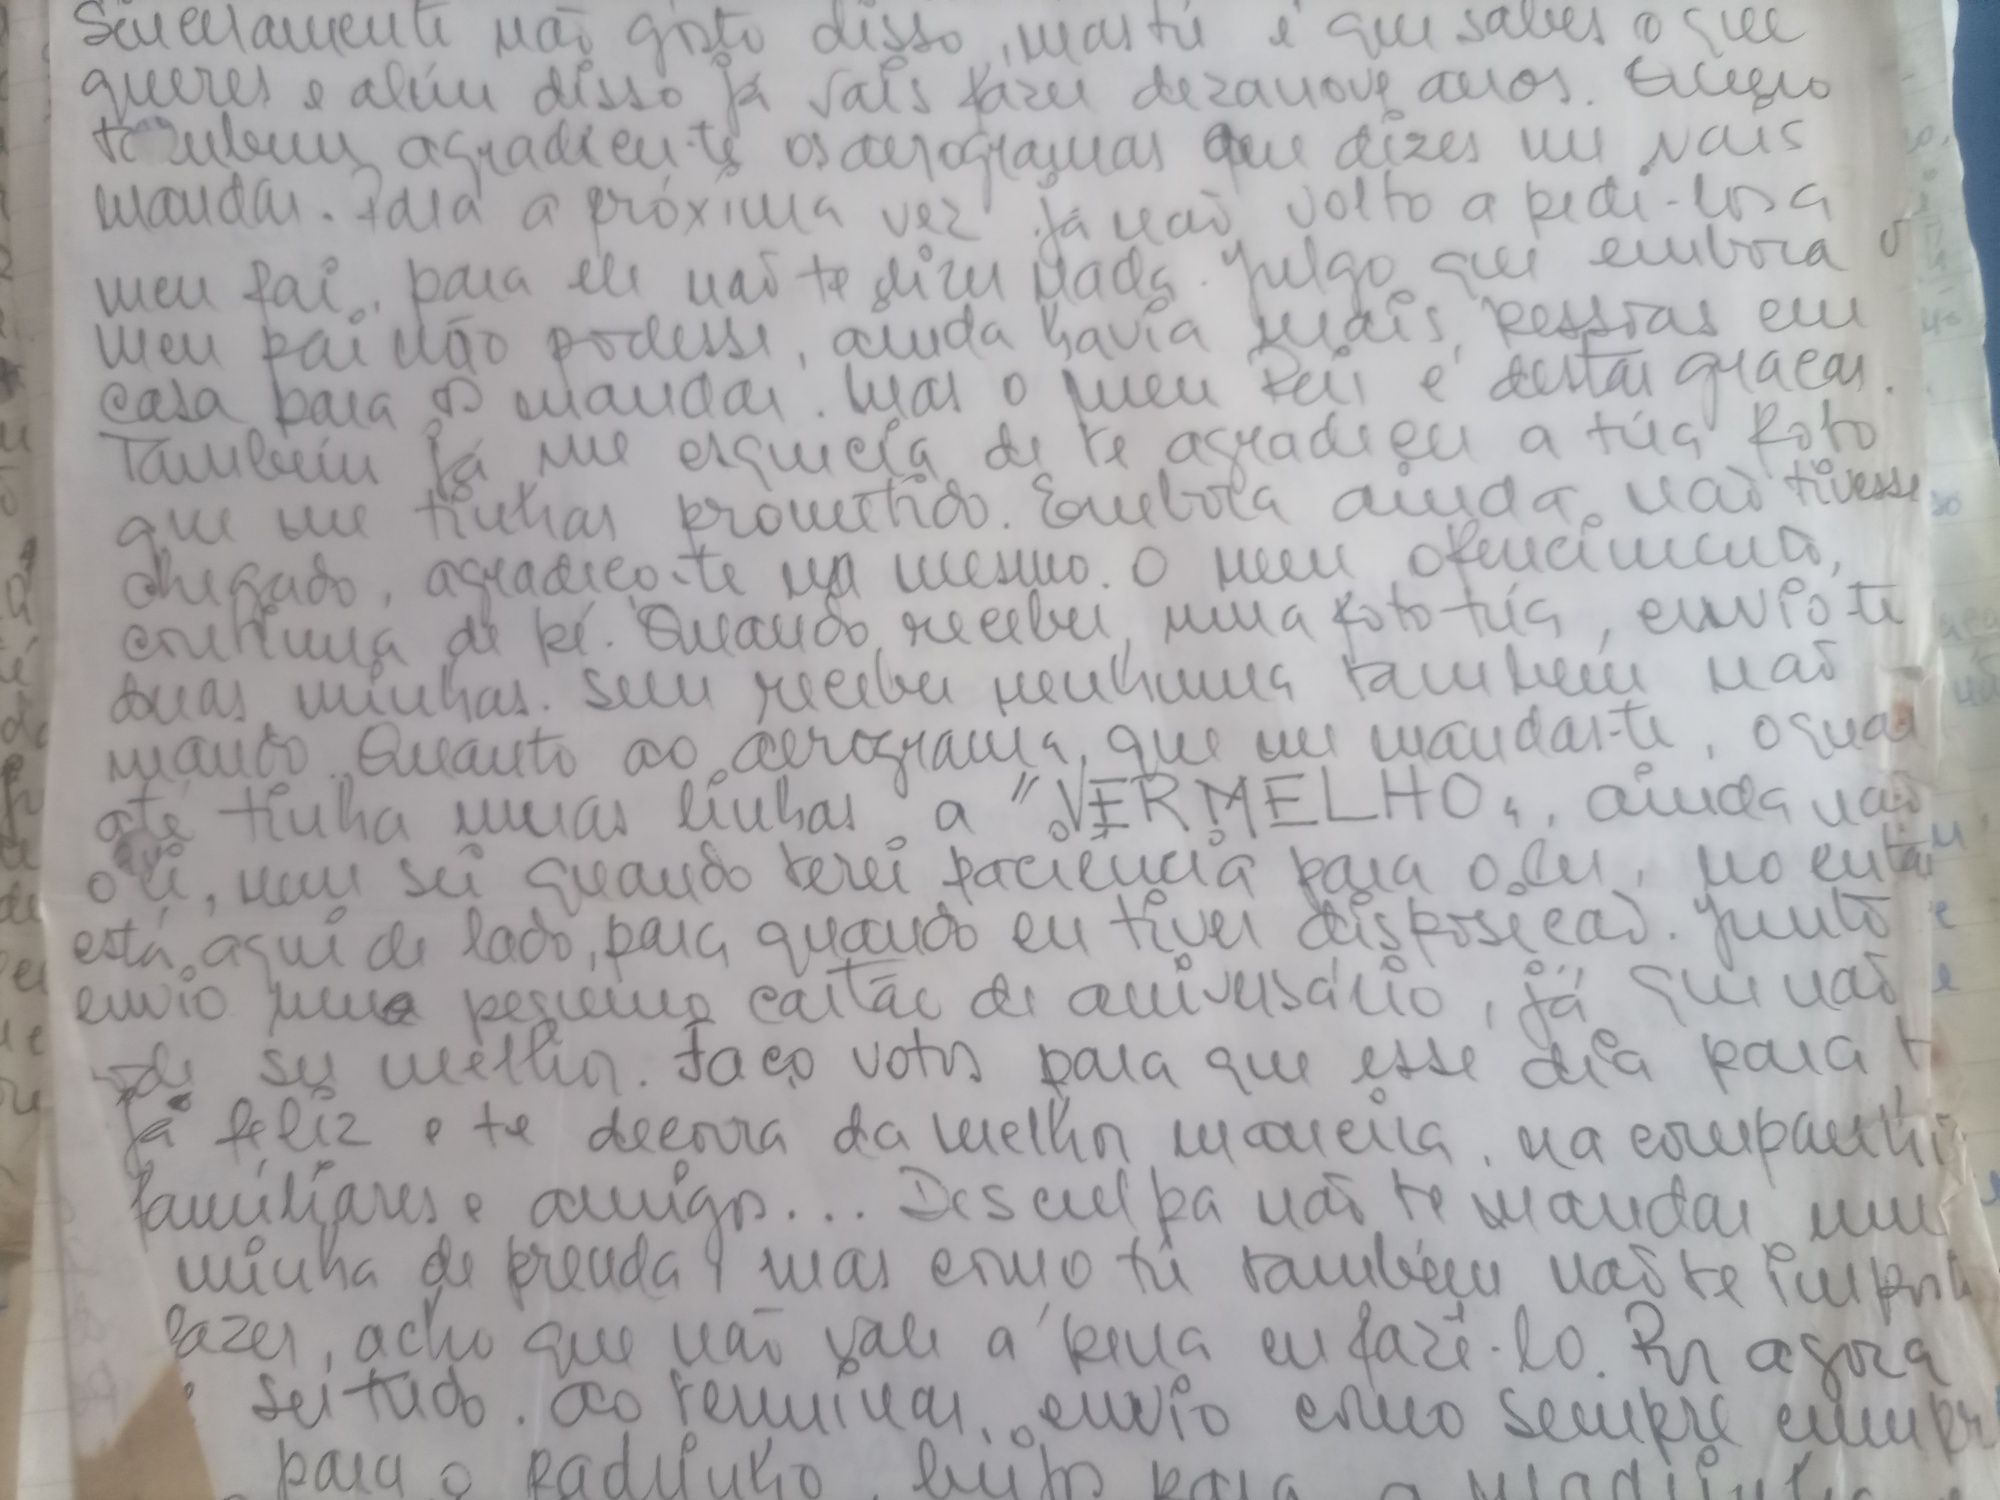 Sinceramente não gosto disso, mas tú é que sabes o que
queres e além disso já vais fazer dezanove anos. Quero
também agradecer-te os aerogramas que dizes me vais
mandar. Para a próxima vez já não volto a pedi-los a
meu pai, para ele não te dizer nada. Julgo que embora o
meu pai não podesse, ainda havia mais pessoas em
casa para os mandar. Mas o meu é destas graças.
Também já me esquecia de te agradecer a túa foto
que me tinhas prometido. Embora ainda não tivesse
chegado, agradeço-te na mesma. O meu oferecimento,
continua de pé. Quando receber uma foto túa, envio-te
duas minhas. Sem receber nenhuma também não
mando. Quanto ao aerograma, que me mandas-te, o qual
até tinha umas linhas a "VERMELHO", ainda não
o li, nem sei quando terei paciência para o ler, no entan
está aqui de lado, para quando eu tiver disposição. Junto
envio um pequeno cartão de aniversário, já que não
ser melhor. Faço votos para que esse dia para t
já feliz e te decorra da melhor maneira, na companhi
familiares e amigos... Desculpa não te mandar um
minha de prenda, mas como tú também não te import
fazer, acho que não vale a pena eu fazê-lo. Por agora
é tudo. Ao terminar, envio como sempre cumpr
para o padrinho, beijos para a madrinha e